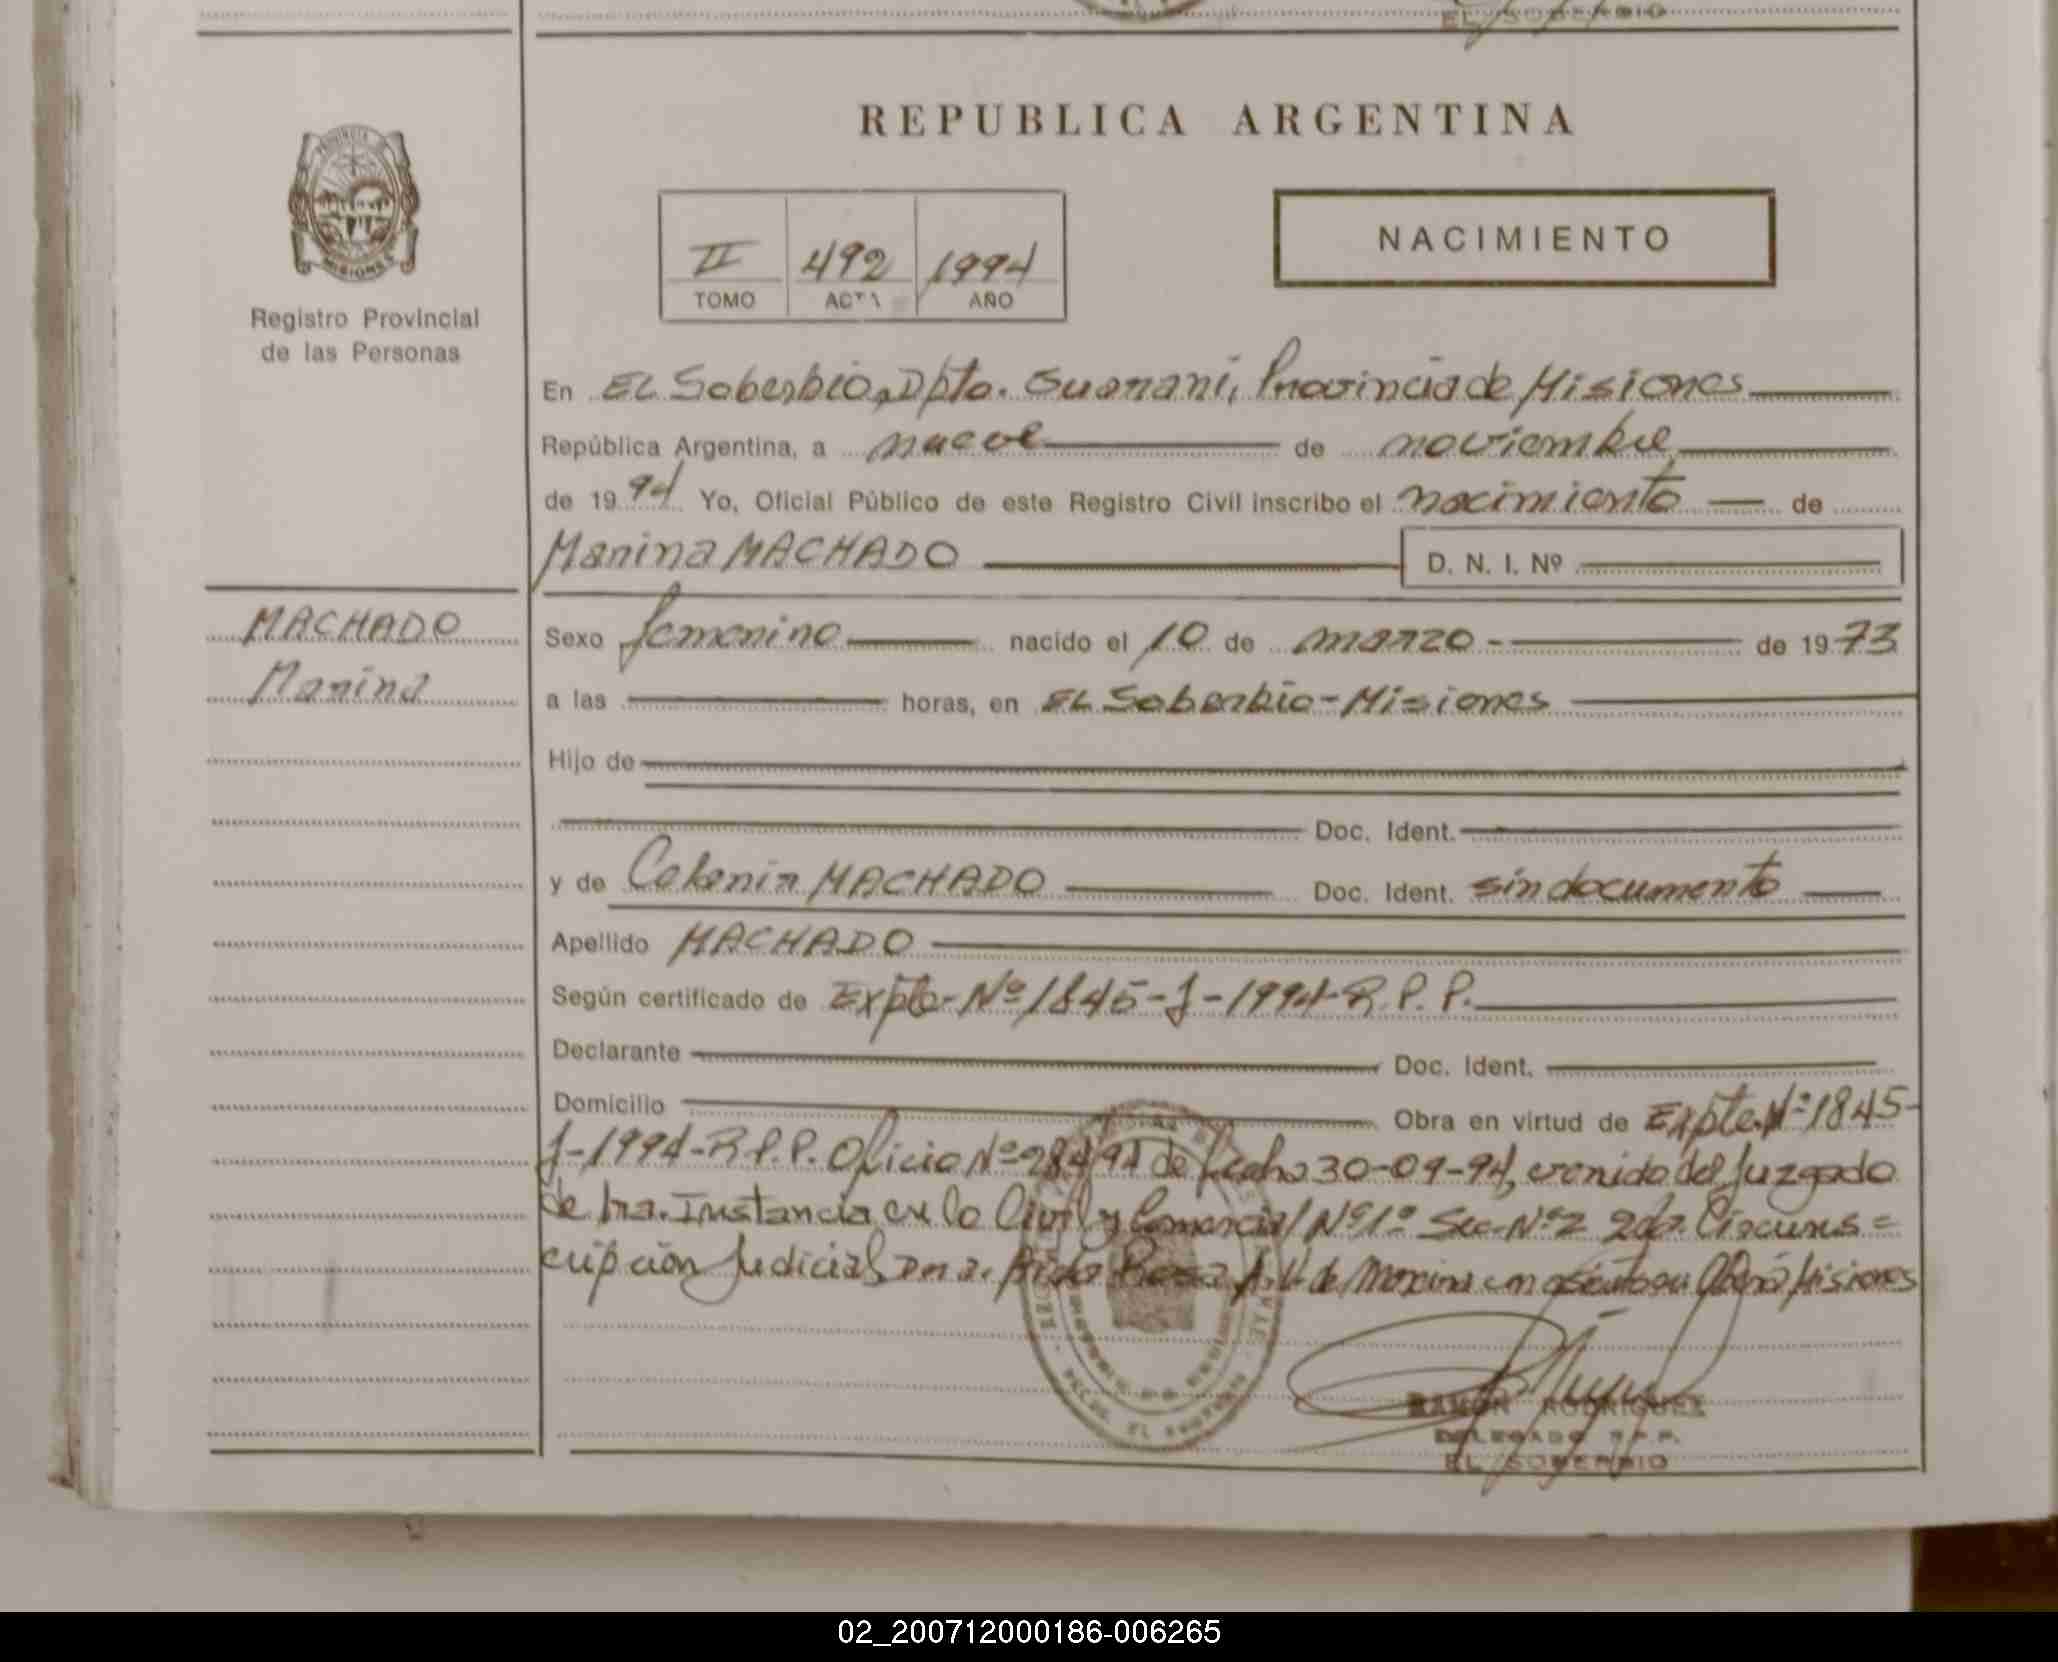 EL SOBERBIO
REPUBLICA ARGENTINA
PROVINCIA
MISIONES
Registro Provincial
de las Personas
II 492 1994
TOMO ACTA AÑO
NACIMIENTO
En EL Soberbio, Dpto. Guaraní, Provincia de Misiones
República Argentina, a nueve de noviembre
de 1994 Yo, Oficial Público de este Registro Civil inscribo el nacimiento de
Marina MACHADO D. N. I. Nº
MACHADO
Marina
Sexo femenino nacido el 10 de marzo - de 1973
a las horas, en EL Soberbio - Misiones
Hijo de
Doc. Ident.
y de MACHADO Doc. Ident. sin documento
Apellido MACHADO
Según certificado de Expte-Nº 1845-J-1994-R.P.P.
Declarante Doc. Ident.
Domicilio Obra en virtud de Expte. Nº 1845-
J-1994-R.P.P. Oficio Nº 284/94 de fecha 30-09-94, venido del Juzgado
de 1ra. Instancia en lo Civil y Comercial Nº 1º Sec. Nº 2 2da. Circuns=
cripción Judicial, en asiento en Oberá Misiones
RAMON RODRIGUEZ
DELEGADO R.P.P.
EL SOBERBIO
02_200712000186-006265